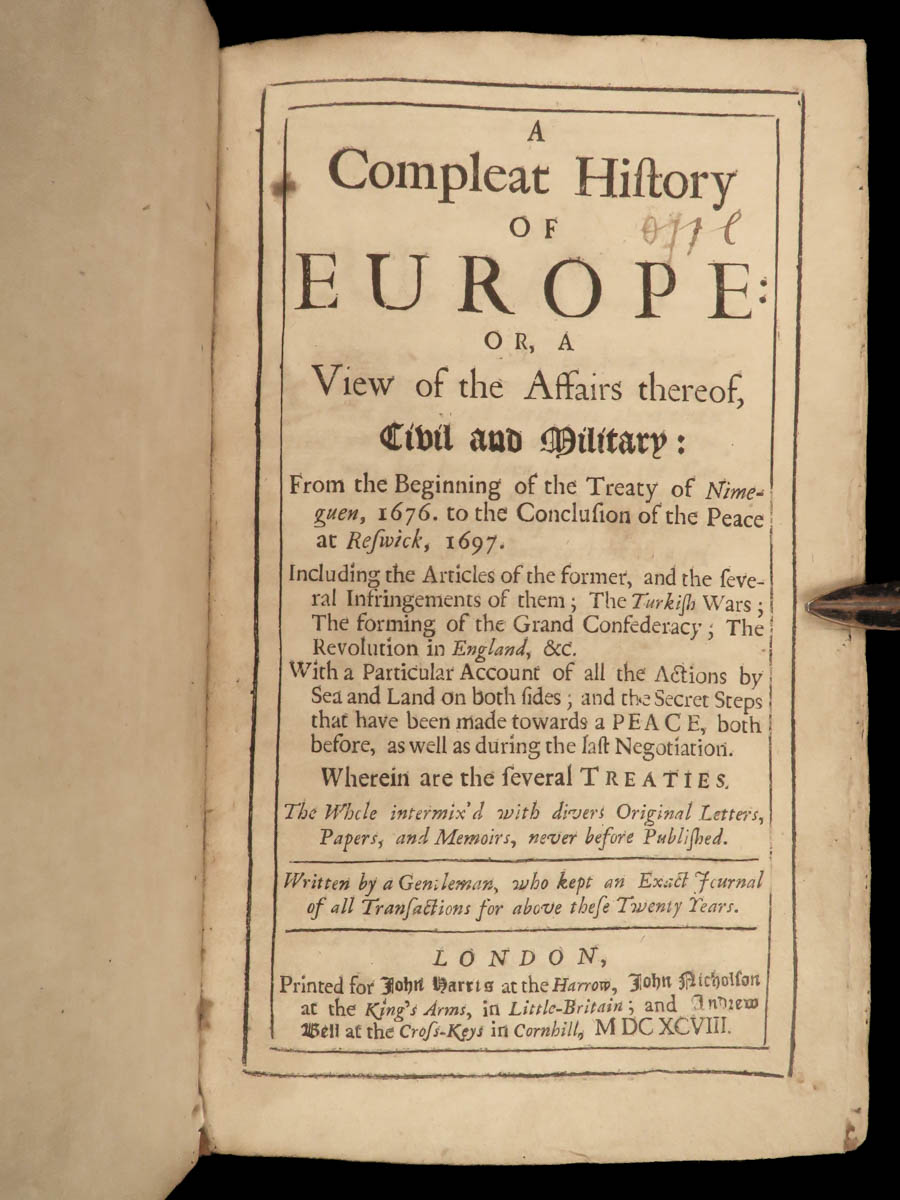 A
Compleat Hiſtory
OF
EUROPE:
OR, A
View of the Affairs thereof,
Civil and Military:
From the Beginning of the Treaty of Nime-
guen, 1676. to the Concluſion of the Peace
at Reſwick, 1697.
Including the Articles of the former, and the ſeve-
ral Infringements of them; The Turkiſh Wars;
The forming of the Grand Confederacy; The
Revolution in England, &c.
With a Particular Account of all the Actions by
Sea and Land on both ſides; and the Secret Steps
that have been made towards a PEACE, both
before, as well as during the laſt Negotiation.
Wherein are the ſeveral TREATIES.
The Whole intermix'd with divers Original Letters,
Papers, and Memoirs, never before Publiſhed.
Written by a Gentleman, who kept an Exact Journal
of all Tranſactions for above theſe Twenty Years.
LONDON,
Printed for John Harris at the Harrow, John Nicholſon
at the King's Arms, in Little-Britain; and Andrew
Bell at the Croſs-Keys in Cornhill, M DC XCVIII.